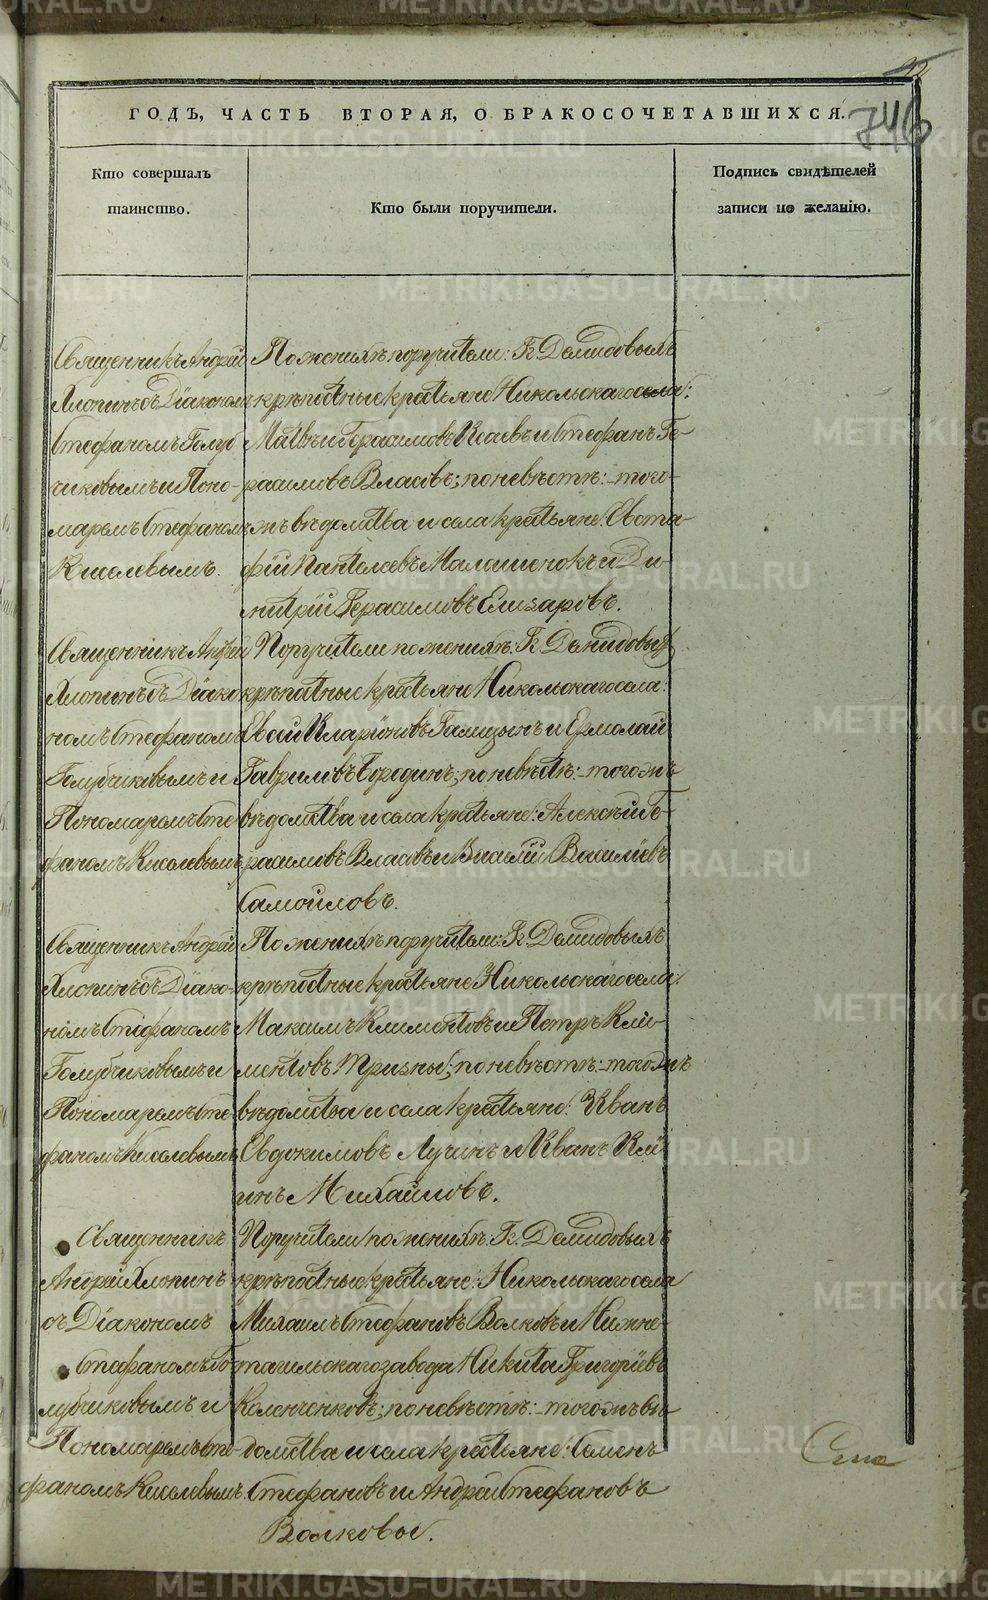 92
746
ГОДЪ, ЧАСТЬ ВТОРАЯ, О БРАКОСОЧЕТАВШИХСЯ.
Кто совершалъ
таинство.
Кто были поручители.
Подпись свидѣтелей
записи по желанію.
Священникъ Андрей
Хлопинъ съ Діакономъ
Стефаномъ Голуб
чиковымъ и Поно-
маремъ Стефаномъ
Киселевымъ.
По женихѣ поручители: Г. Демидовыхъ
крѣпостные крестьяне Никольскаго села:
Матвѣй Герасимовъ Исаевъ и Стефанъ Ге-
расимовъ Власовъ; по невѣстѣ: того-
жъ вѣдомства и села крестьяне: Евста-
фій Пантелеевъ Малашенокъ и Ди-
митрій Герасимовъ Елизаровъ.
Священникъ Андрей
Хлопинъ съ Діако
номъ Стефаномъ
Голубчиковымъ и
Пономаремъ Сте
фаномъ Киселевымъ
Поручители по женихѣ: Г. Демидовыхъ
крѣпостные крестьяне Никольскаго села:
Евсей Иларіоновъ и Ермолай
Гавриловъ Бородинъ; по невѣстѣ: того жъ
вѣдомства и села крестьяне: Алексѣй Ге-
расимовъ Власовъ и Василій Васильевъ
Самойловъ.
Священникъ Андрей
Хлопинъ съ Діако-
номъ Стефаномъ
Голубчиковымъ и
Пономаремъ Сте-
фаномъ Киселевымъ
По женихѣ поручители: Г. Демидовыхъ
крѣпостные крестьяне Никольскаго села:
Максимъ Климентовъ и Петръ Кли-
ментовъ Тризны; по невѣстѣ: того жъ
вѣдомства и села крестьяне: Иванъ
Евдокимовъ Лучинъ и Иванъ Иль
инъ Михайловъ.
Священникъ
Андрей Хлопинъ
съ Діакономъ
Стефаномъ Го
лубчиковымъ и
Пономаремъ Сте
фаномъ Киселевымъ.
Поручители по женихѣ: Г. Демидовыхъ
крѣпостные крестьяне: Никольскаго села
Михаилъ Стефановъ Волковъ и Нижне-
тагильскаго завода Никита Григорьевъ
Коленченковъ; по невѣстѣ: того жъ вѣ-
домства и села крестьяне: Семенъ
Стефановъ и Андрей Стефановъ
Волковы.
METRIKI.GASO-URAL.RU